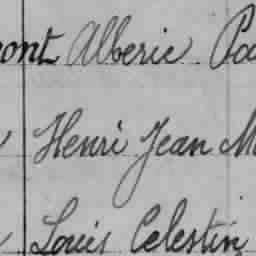 ont Alberic Pa
Henri Jean M
Louis Celestin